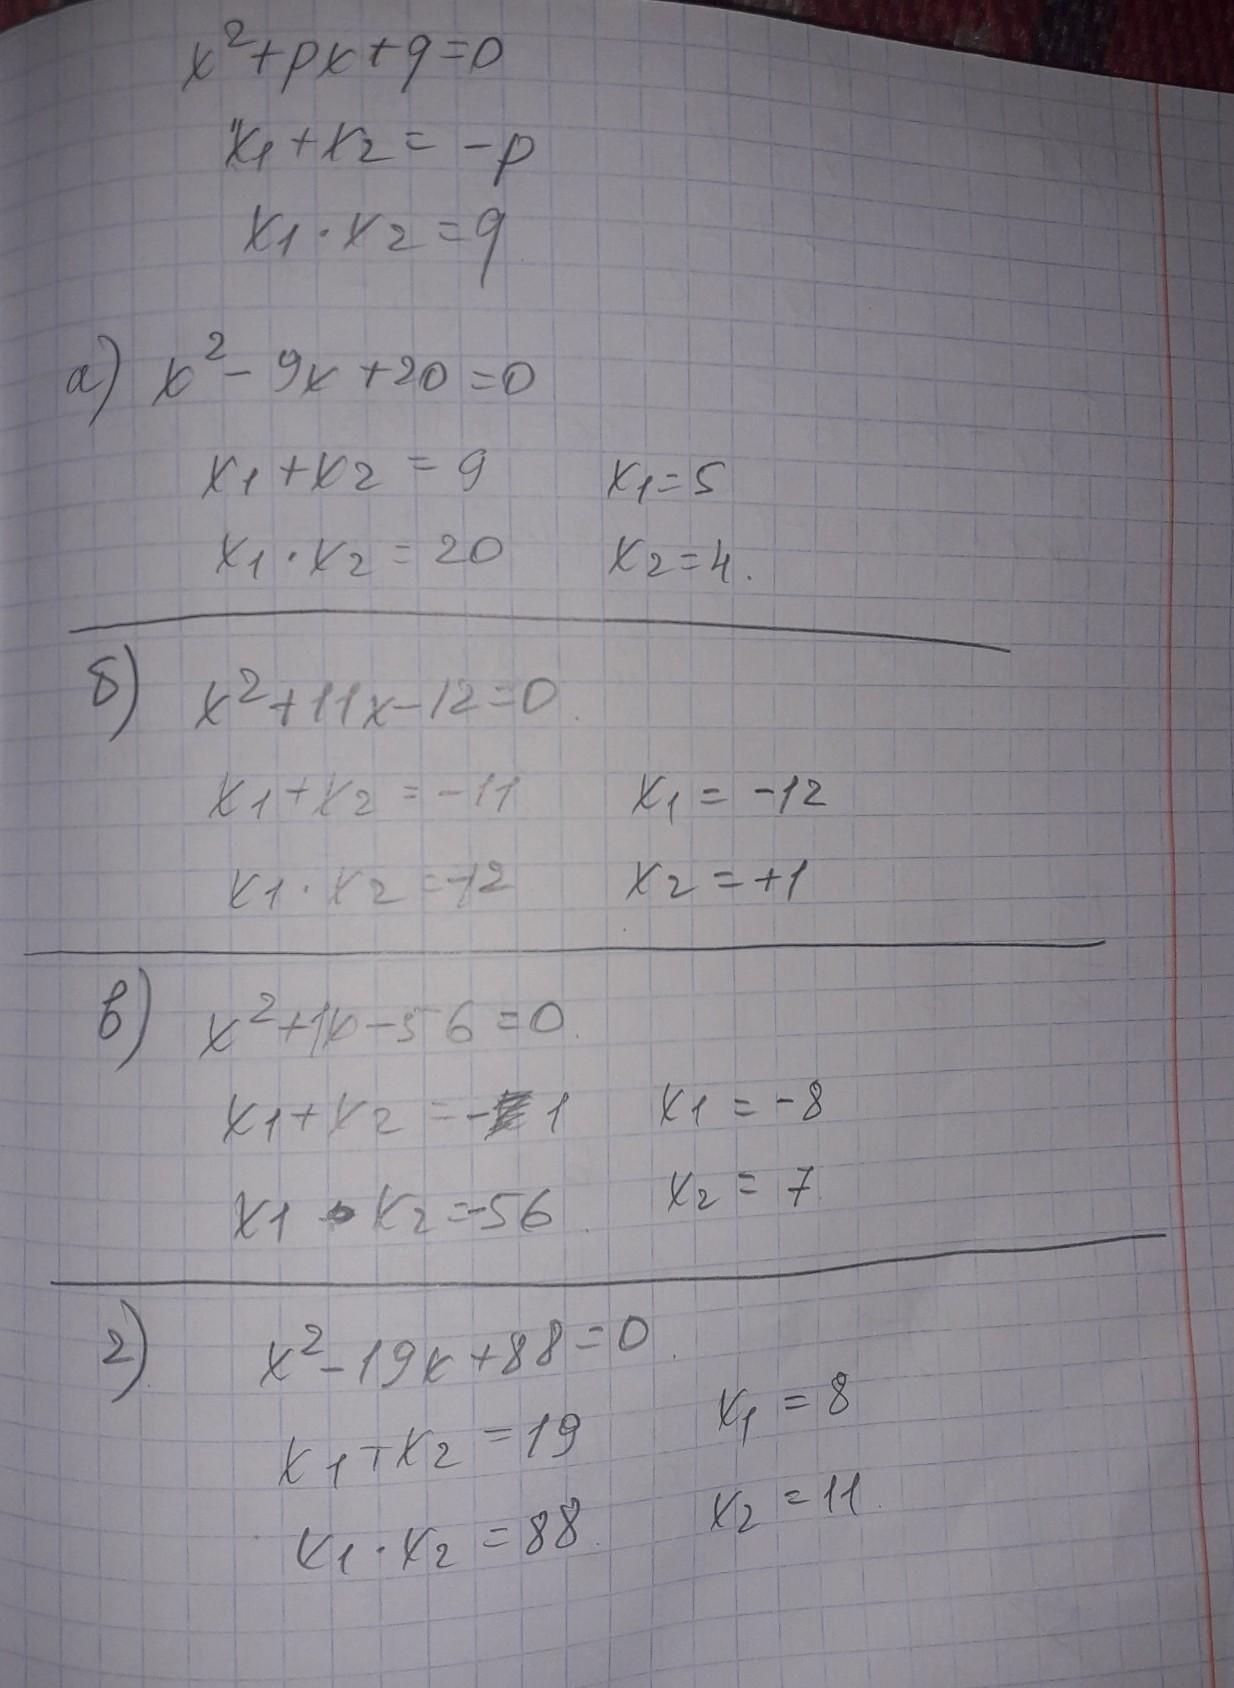 x²+px+q=0
x₁+x₂=-p
x₁·x₂=q
а) x²-9x+20=0
x₁+x₂=9 x₁=5
x₁·x₂=20 x₂=4.
б) x²+11x-12=0.
x₁+x₂=-11 x₁=-12
x₁·x₂=-12 x₂=+1
в) x²+1x-56=0.
x₁+x₂=-1 x₁=-8
x₁·x₂=-56. x₂=7
г) x²-19x+88=0.
x₁+x₂=19 x₁=8
x₁·x₂=88. x₂=11.